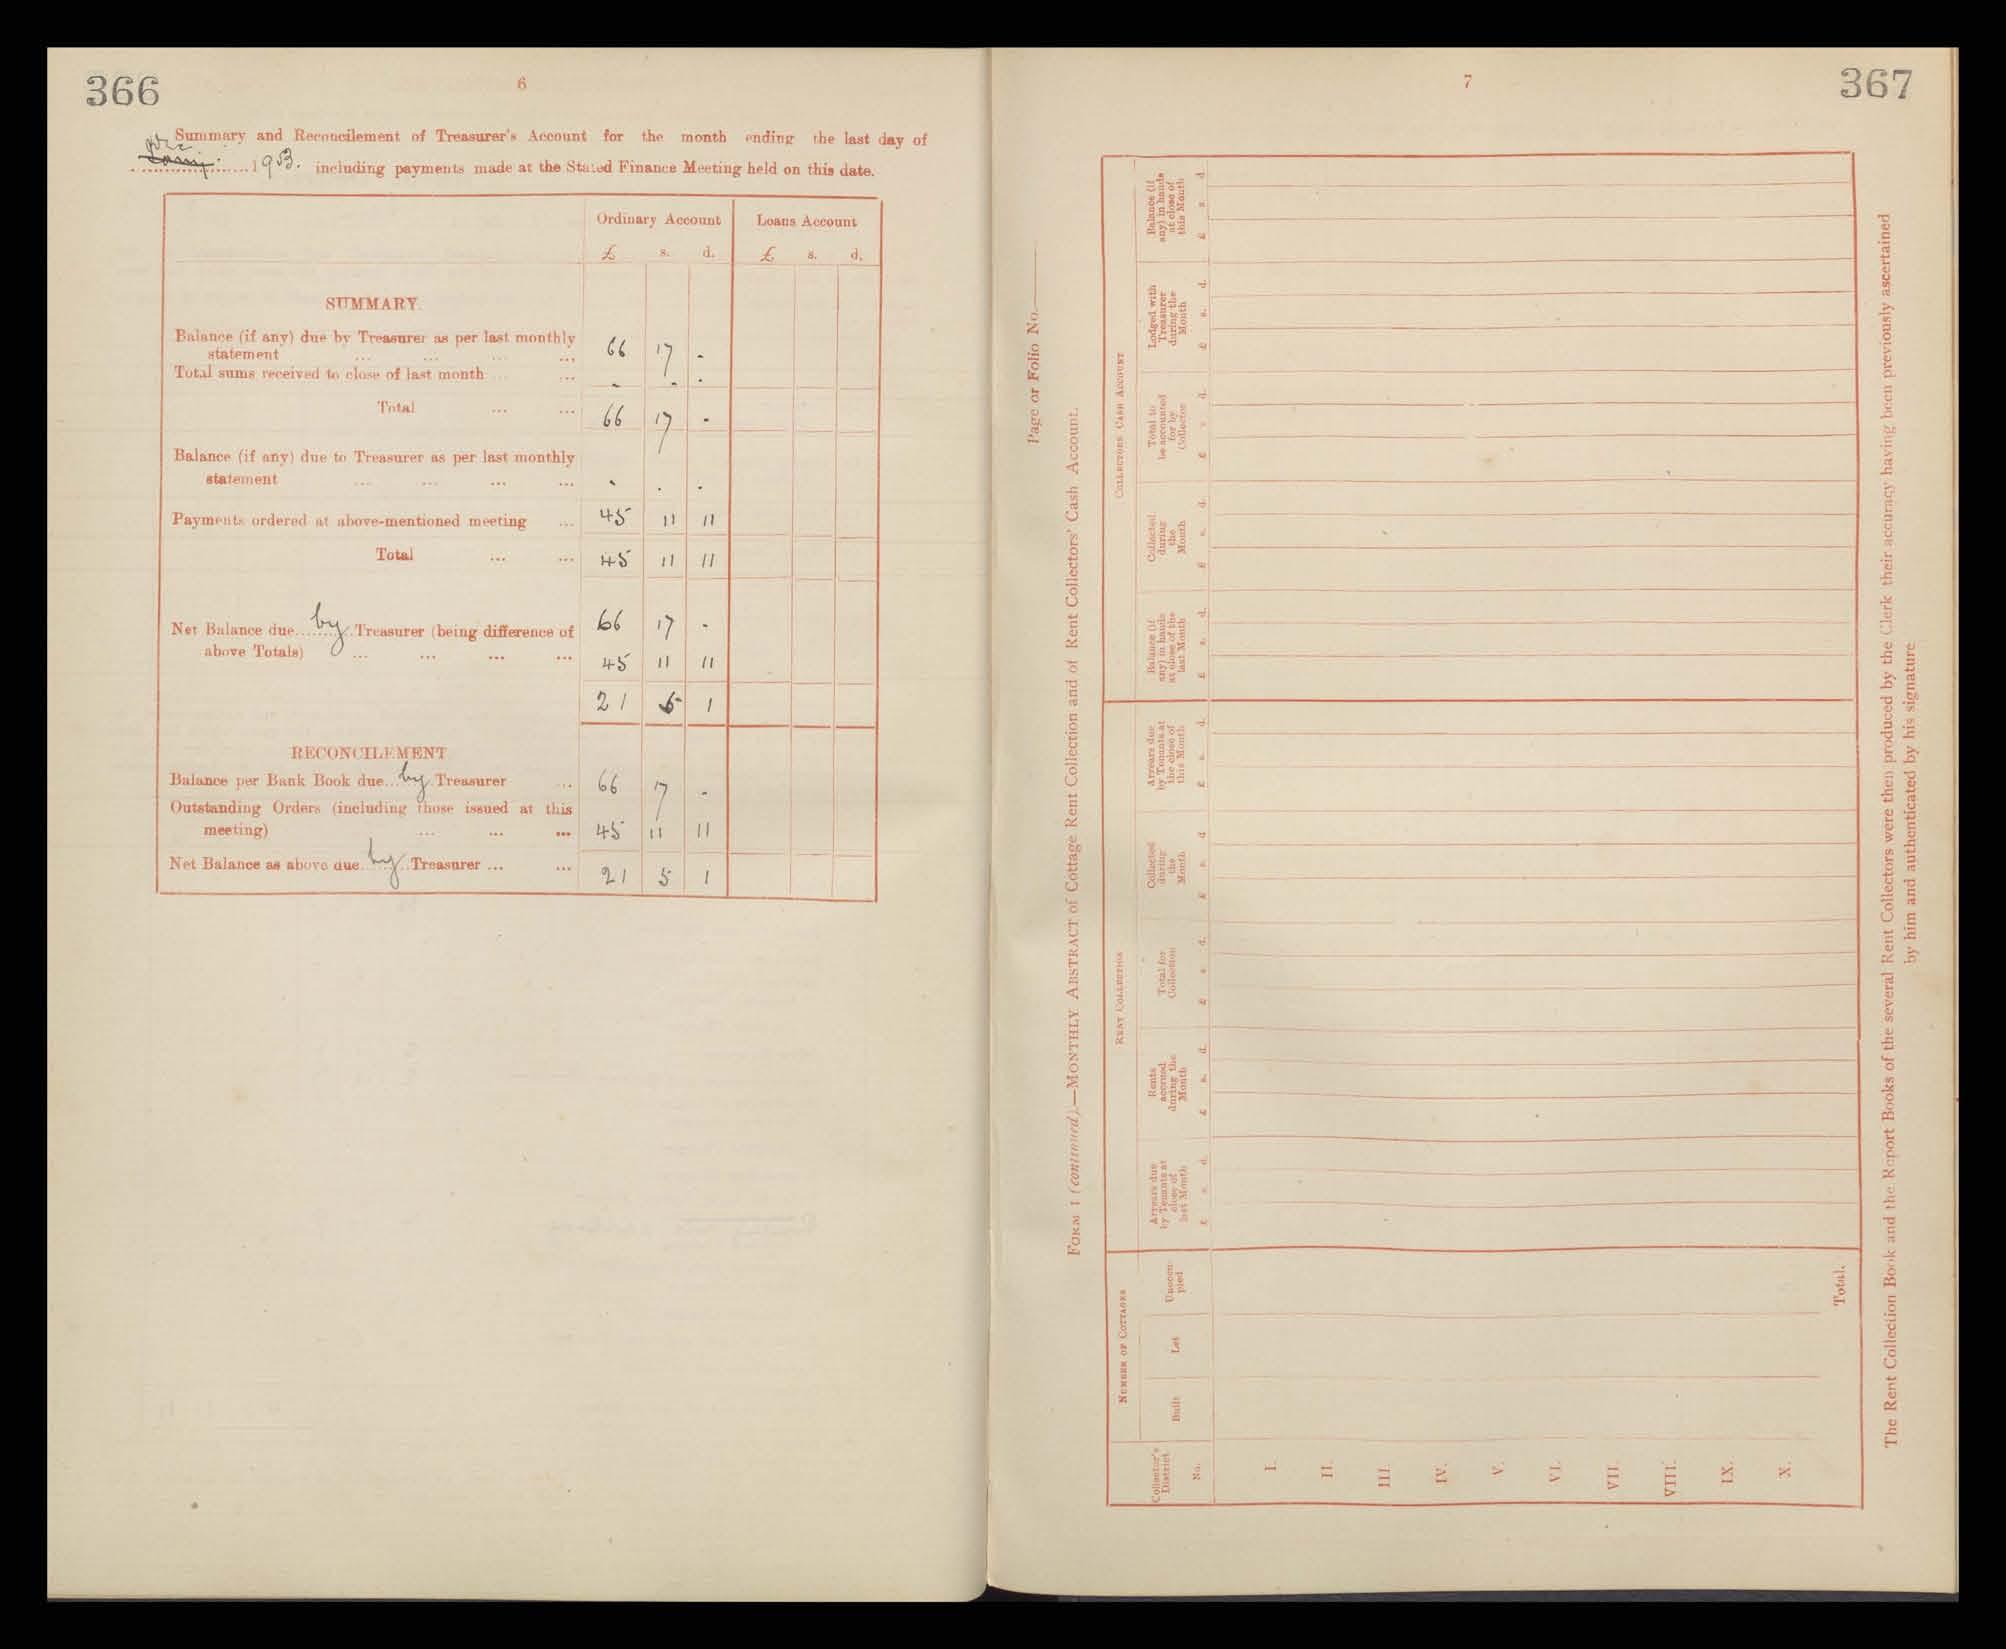 366
6
Summary and Reconcilement of Treasurer's Account for the month ending the last day of
1953. including payments made at the Stated Finance Meeting held on this date.
Ordinary Account Loans Account
£ s. d. £ s. d.
SUMMARY.
Balance (if any) due by Treasurer as per last monthly
statement ... ... ... ... 66 17 -
Total sums received to close of last month ... ... - - -
Total ... ... 66 17 -
Balance (if any) due to Treasurer as per last monthly
statement ... ... ... ... - - -
Payments ordered at above-mentioned meeting ... 45 11 11
Total ... ... 45 11 11
Net Balance due by Treasurer (being difference of 66 17 -
above Totals) ... ... ... ... 45 11 11
21 5 1
RECONCILEMENT
Balance per Bank Book due by Treasurer ... 66 17 -
Outstanding Orders (including those issued at this
meeting) ... ... ... 45 11 11
Net Balance as above due by Treasurer ... ... 21 5 1
7
367
Page or Folio No.
FORM 1 (continued).—MONTHLY ABSTRACT of Cottage Rent Collection and of Rent Collectors' Cash Account.
NUMBER OF COTTAGES RENT COLLECTION COLLECTORS CASH ACCOUNT
Collector's District No.
Built
Let
Unoccupied
Arrears due by Tenants at close of last Month £ s. d.
Rents accrued during the Month £ s. d.
Total for Collection £ s. d.
Collected during the Month £ s. d.
Arrears due by Tenants at the close of this Month £ s. d.
Balance (if any) in hands at close of the last Month £ s. d.
Collected during the Month £ s. d.
Total to be accounted for by Collector £ s. d.
Lodged with Treasurer during the Month £ s. d.
Balance (if any) in hands at close of this Month £ s. d.
I.
II.
III.
IV.
V.
VI.
VII.
VIII.
IX.
X.
Total.
The Rent Collection Book and the Report Books of the several Rent Collectors were then produced by the Clerk their accuracy having been previously ascertained
by him and authenticated by his signature